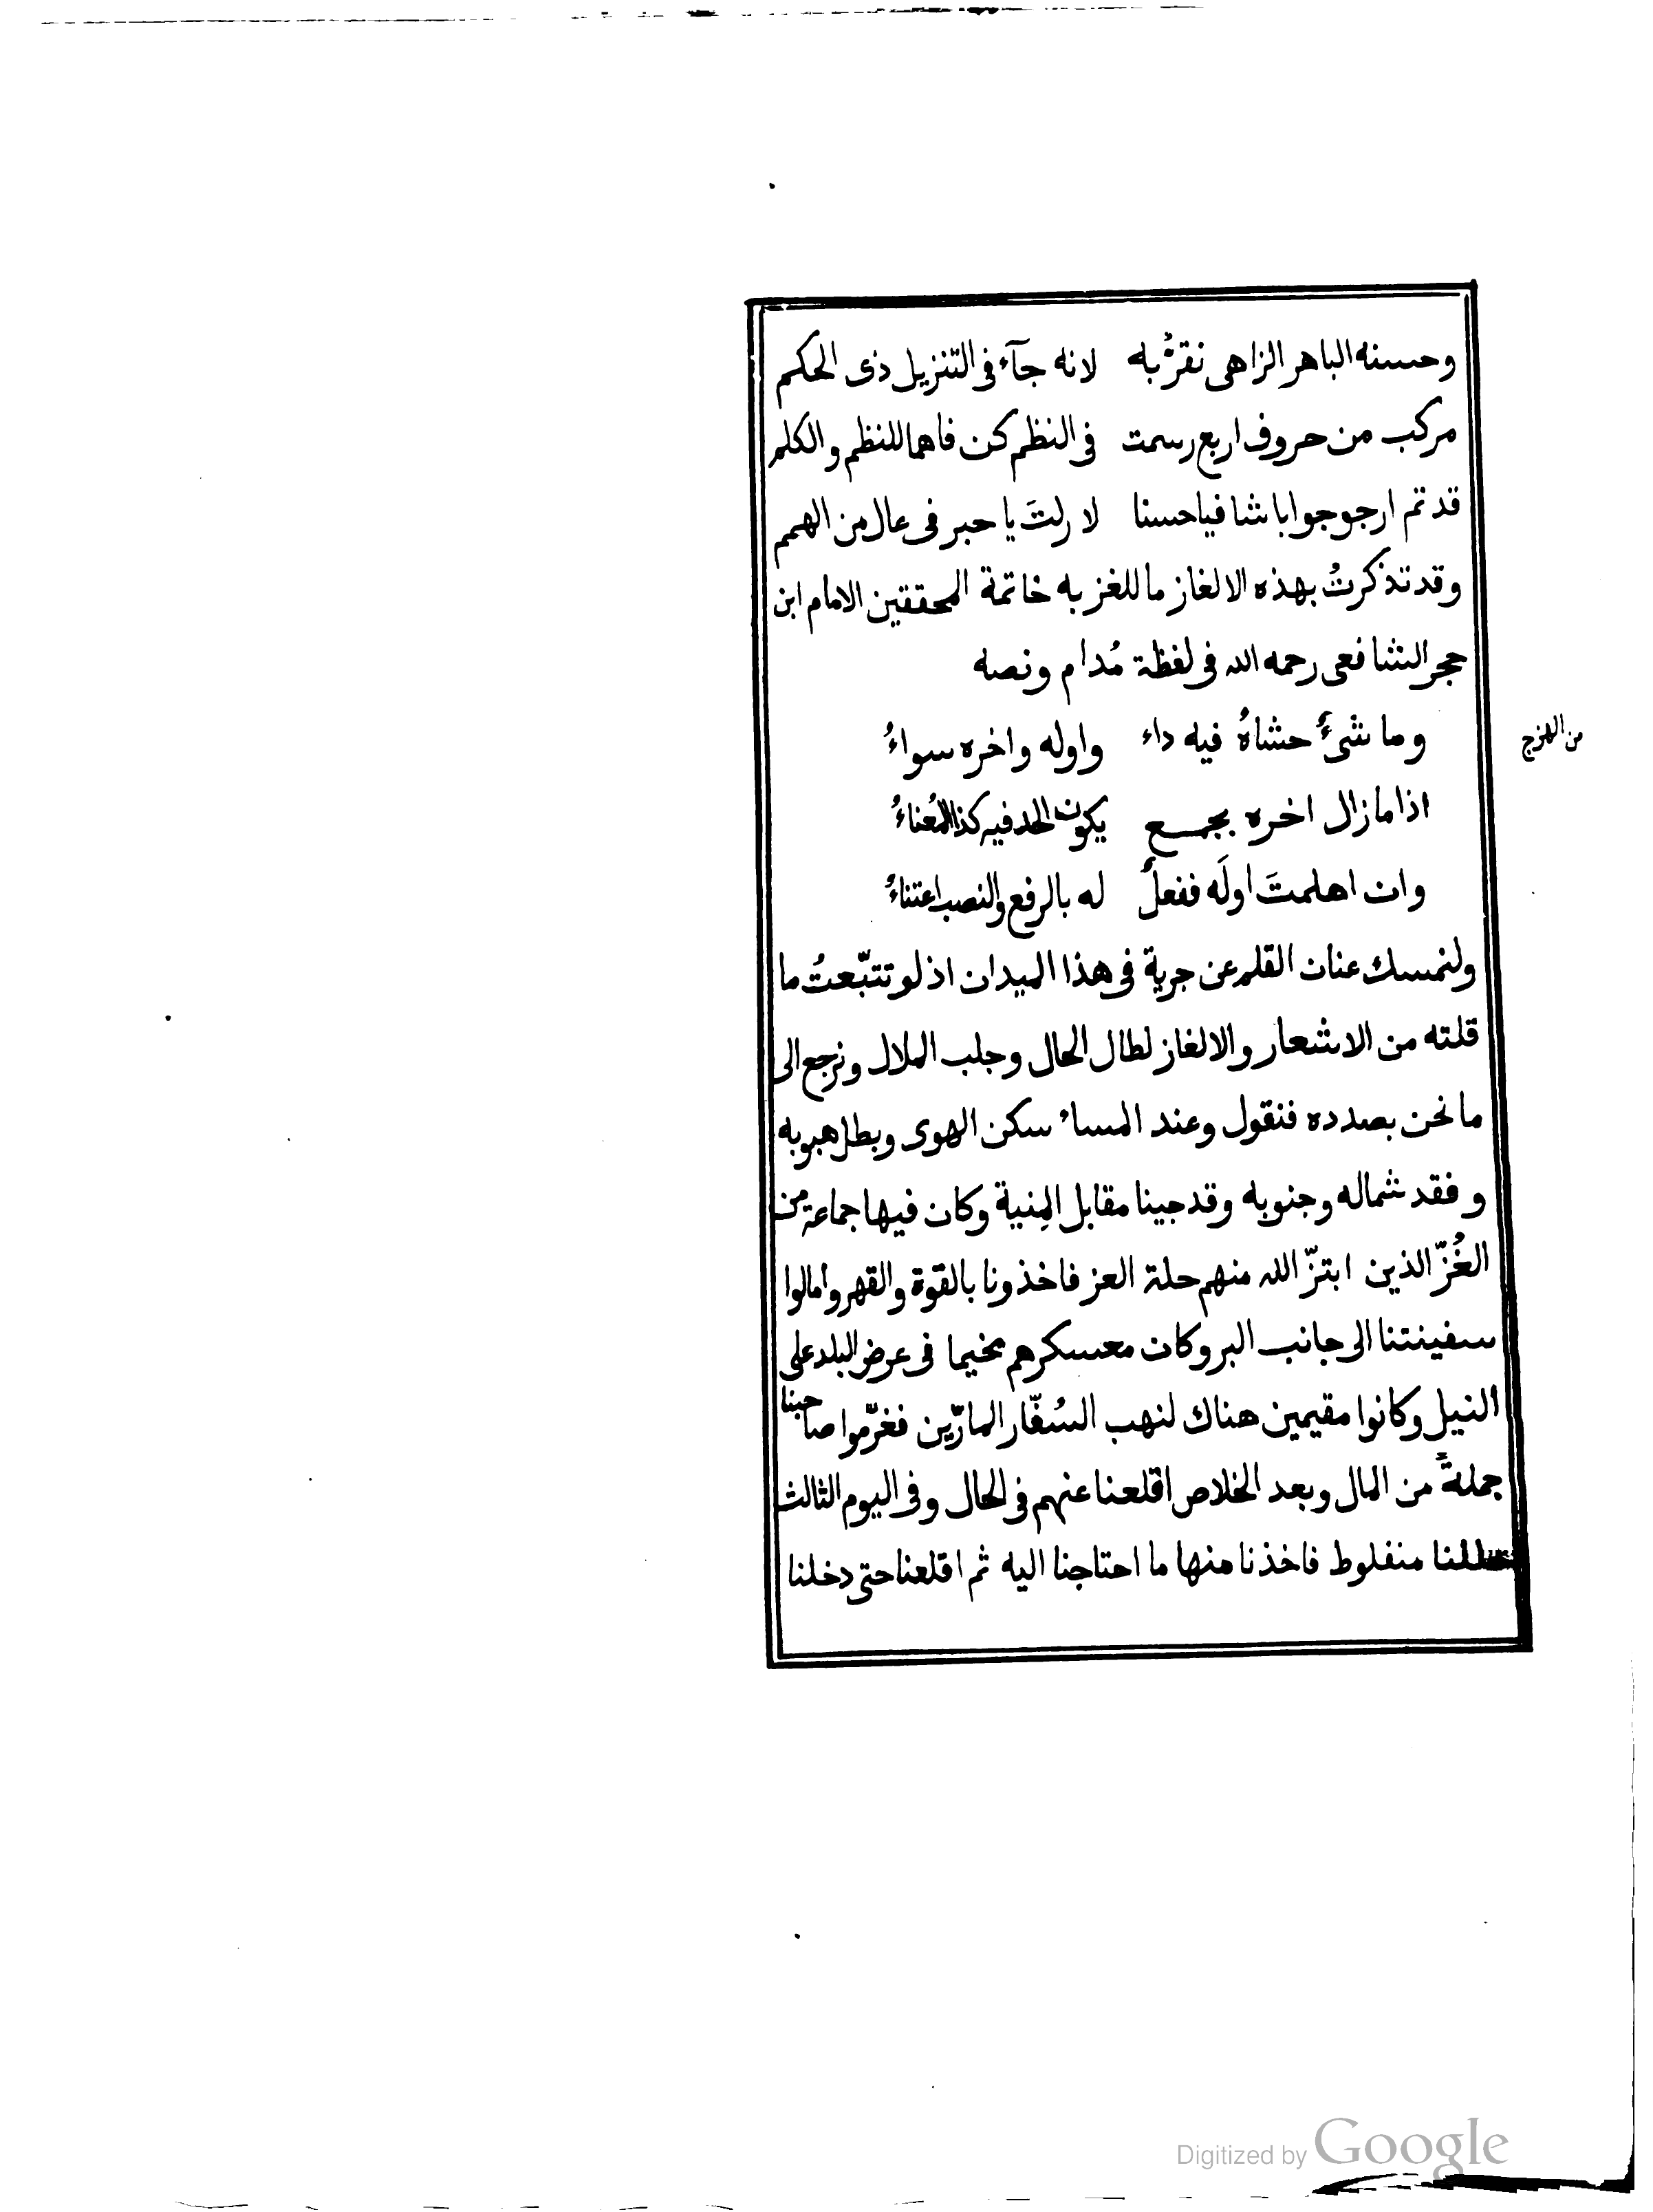 وحسنه الباهر الزاهى نقرُّ به لانه جآء فى التنزيل ذى الحكم
مركب من حروف اربع رسمت فى النظم كن فاهما للنظم والكلم
قد تم ارجو جوابا شافيا حسنا لا زلتَ يا حبر فى عال من الهمم
وقد تذكرتُ بهذه الالغاز ما للغز به خاتمة المحققين الامام ابن
حجر الشافعى رحمه الله فى لفظة مُدام ونصه
وما شىءٌ حشاهُ فيه داء واوله واخره سواءُ
من الهزج
اذا ما زال اخره بجمع يكون الحد فيه كذا المُعناءُ
وان اهلمتَ اولَه ففعلٌ له بالرفع والنصب اعتناءُ
ولنمسك عنان القلم عن جرية فى هذا الميدان اذ لو تتبّعتُ ما
قلته من الاشعار والالغاز لطال الحال وجلب الملال ونرجع الى
ما نحن بصدده فنقول وعند المساء سكن الهوى وبطل هبوبه
وفقد شماله وجنوبه وقد جينا مقابل المِنية وكان فيها جماعة من
الغُزّ الذين ابتزّ الله منهم حلة العز فاخذونا بالقوة والقهر وامالوا
سفينتنا الى جانب البر وكان معسكرهم مخيما فى عرض البلد على
النيل وكانوا مقيمين هناك لنهب السُفّار المارّين فغرّموا صاحبنا
جملةً من المال وبعد الخلاص اقلعنا عنهم فى الحال وفى اليوم الثالث
منفلوط فاخذنا منها ما احتاجنا اليه ثم اقلعنا حتى دخلنا
Digitized by Google